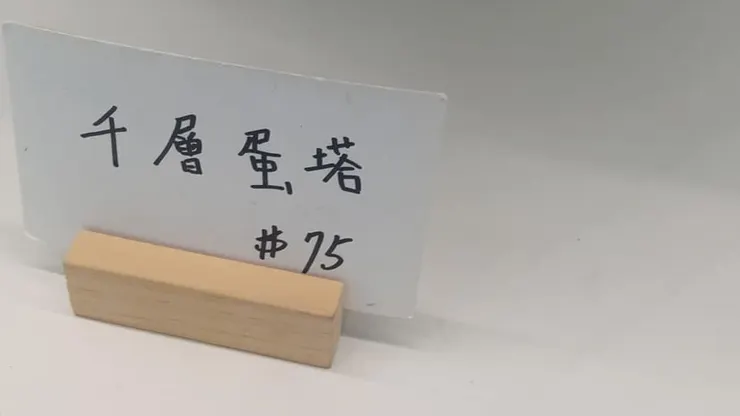 千層蛋塔
#75